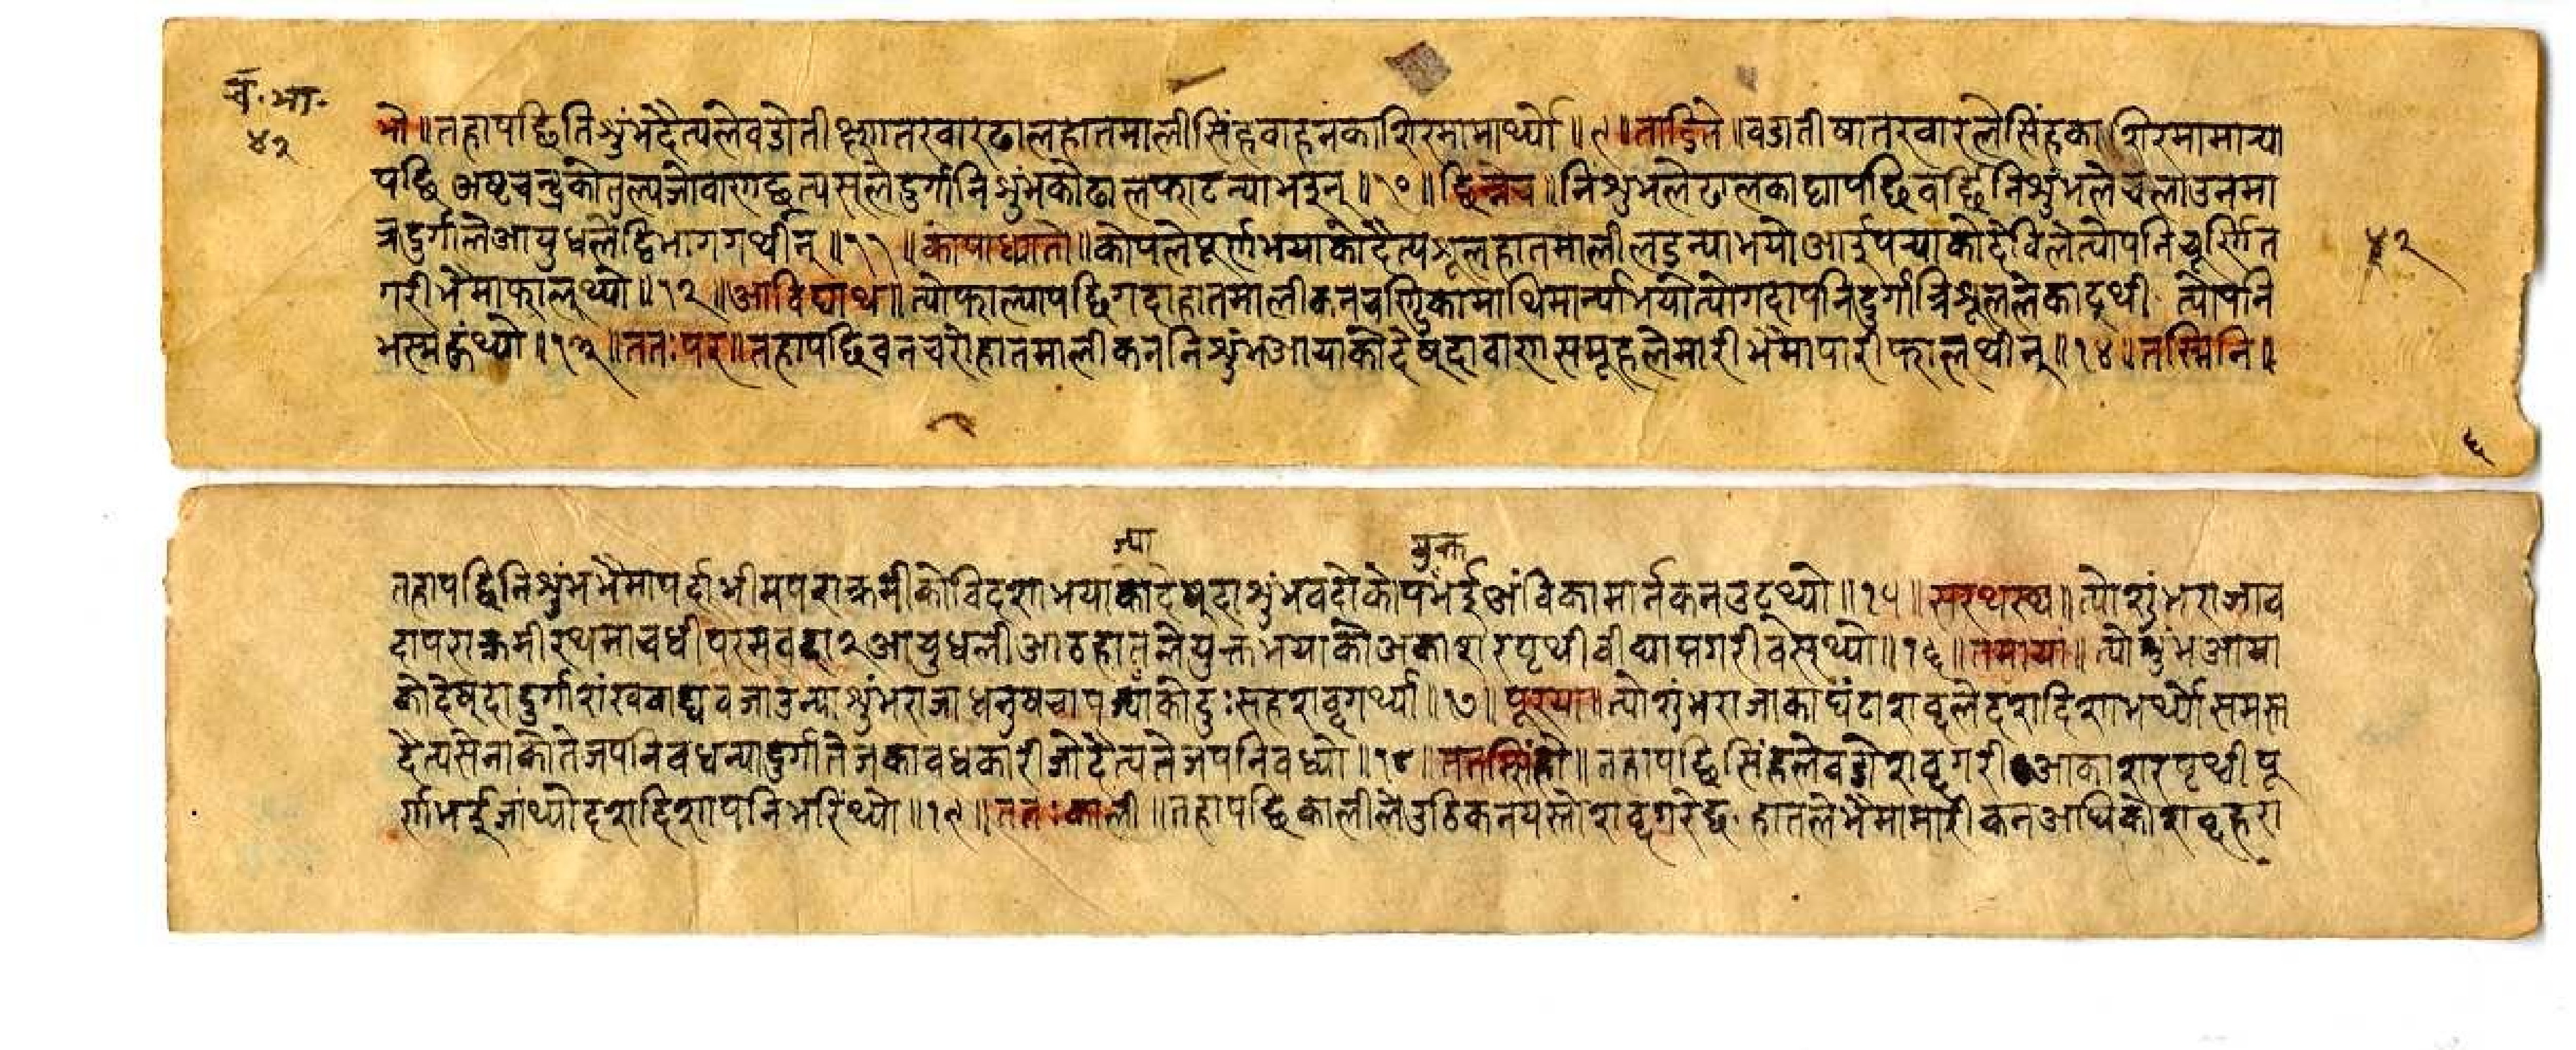 चं. भा.
४२
भौ॥ तहापछितिशुंभदैत्यलेवडोतीक्ष्णतरवारढालहातमालीसिंहवाहनकाशिरमामार्थ्यो॥९॥ताडिते॥वडातीषातरवारलेसिंहकाशिरमामार्‍या
पछिअष्टचन्द्रकोतुल्यजोवाणछत्यसलेदुर्गानिशुंभकोढालफाटन्याभइन्॥१०॥छिन्नेच॥निशुंभलेढालकाट्यापछिवर्छिनिशुंभलेचलाउनमा
त्रदुर्गालेआयुधलेद्विभागगर्थीन्॥११॥कोपाध्मातो॥कोपलेपूर्णभयाकोदैत्यशूलहातमालीलडन्याभयोआईपर्‍याकोदेविलेत्योपनिचूर्णित
गरीभैमाफाल्थ्यो॥१२॥आविद्याथ॥त्योफाल्यापछिगदाहातमालीकनचण्डिकामाथिमार्न्याभयोत्योगदापनिदुर्गात्रिशूललेकाट्थी त्योपनि
भस्महुंथ्यो॥१३॥ततःपर॥तहापछिवनचरोहातमालीकननिशुंभआयाकोदेष्दावाणसमूहलेमारीभैमापारीफाल्थीन्॥१४॥तस्मिनि॥
४२
तहापछिनिशुंभभैमापर्दाभीमपराक्रमीकोविदशाभयाकोदेष्दाशुंभवदोकोपभंईअंविकामार्नकनउट्थ्यो॥१५॥सरथस्थ॥त्योशुंभराजाव
ज्या
युक्त
दापराक्रमीरथमाचधीपरमवदा२आयुधलीआठहातलेयुक्तभयाकोअकाशरपृथीवीव्याप्तगरीवस्थ्यो॥१६॥तमायां॥त्योशुंभआया
कोदेष्दादुर्गाशंखवाद्यवजाउन्याशुंभराजाधनुषचापज्याकोदुःसहशव्दगर्थ्यो॥१७॥पूरया॥त्योशुंभराजाकाघंटाशव्दलेदशदिशाभर्थ्योसमस्त
दैत्यसेनाकोतेजपनिवधन्यादुर्गातेजकावधकारीजोदैत्यतेजपनिवध्यो॥१८॥ततस्सिंहो॥तहापछिसिंहलेवडोशव्दगरीआकाशरपृथ्वीपू
र्णभईजांथ्योदशदिशापनिभरिंथ्यो॥१९॥ततःकाली॥तहापछिकालीलेउठिकनयस्तोशव्दगरेछ हातलेभैमामारीकनआघिकोशव्दहरा